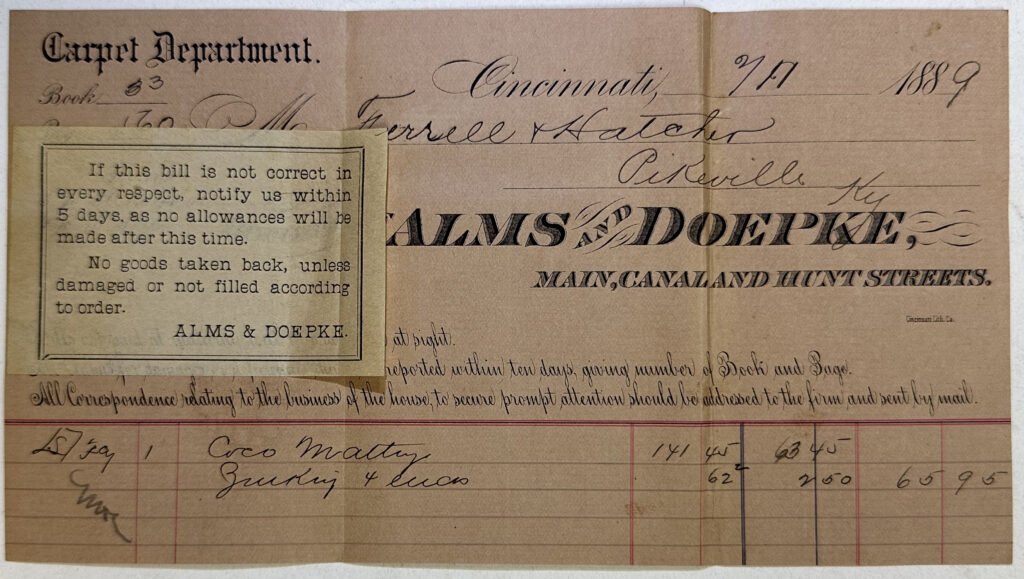 Carpet Department.
Book 33
Cincinnati, 2/11 1889
M Ferrell & Hatcher
Pikeville Ky
If this bill is not correct in
every respect, notify us within
5 days, as no allowances will be
made after this time.
No goods taken back, unless
damaged or not filled according
to order.
ALMS & DOEPKE.
ALMS AND DOEPKE,
MAIN, CANAL AND HUNT STREETS.
Cincinnati Lith. Co.
at sight.
reported within ten days, giving number of Book and Page.
All Correspondence relating to the business of the house, to secure prompt attention should be addressed to the firm, and sent by mail.
1 Coco Matting 141 45 63 45
& ends 62 2 50 65 95